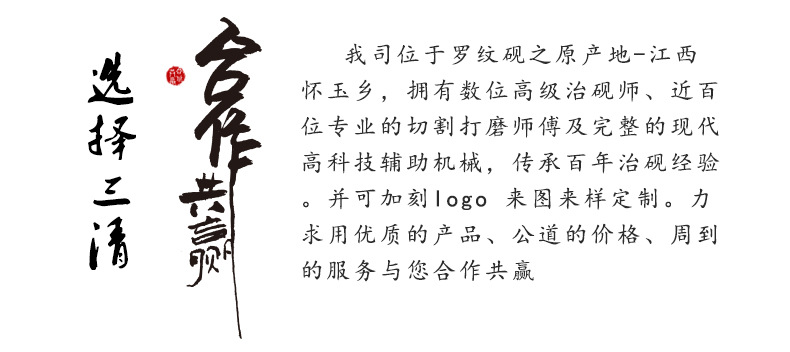 选择三清
合作共赢
我司位于罗纹砚之原产地-江西
怀玉乡，拥有数位高级治砚师、近百
位专业的切割打磨师傅及完整的现代
高科技辅助机械，传承百年治砚经验
。并可加刻logo 来图来样定制。力
求用优质的产品、公道的价格、周到
的服务与您合作共赢